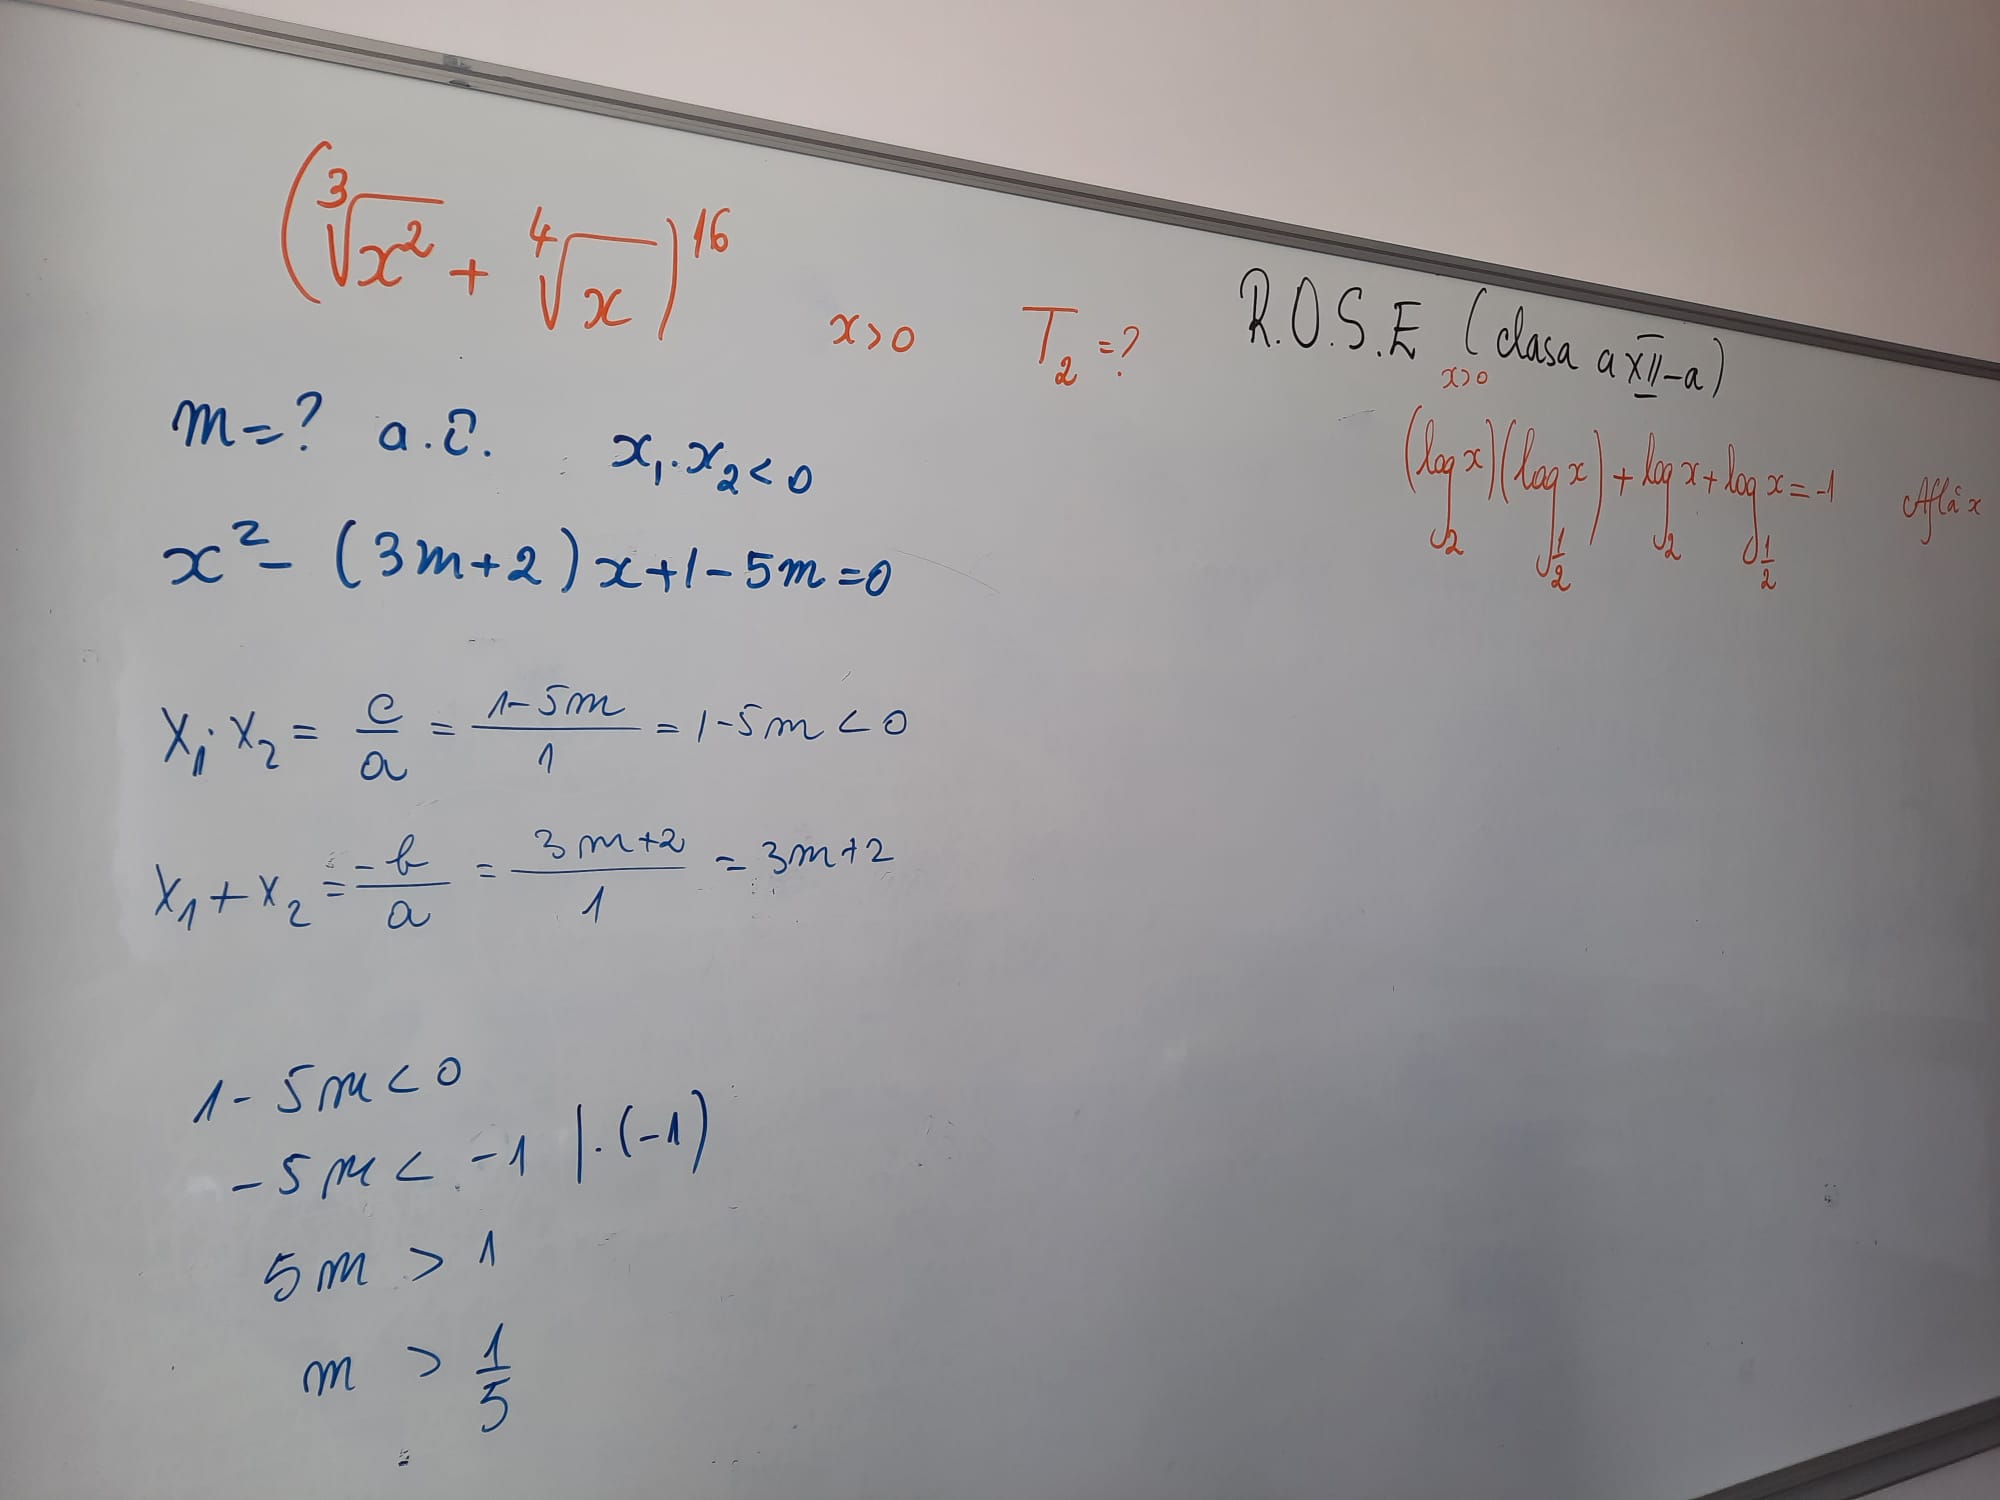 (∛x² + ∜x)¹⁶ x>0 T₂=?
R.O.S.E (clasa a XII-a)
x>0
(log₂ x)(log_{1/2} x) + log₂ x + log_{1/2} x = -1 Află x
m=? a.î. x₁·x₂<0
x² - (3m+2)x+1-5m=0
x₁·x₂ = c/a = (1-5m)/1 = 1-5m<0
x₁+x₂ = -b/a = (3m+2)/1 = 3m+2
1-5m<0
-5m< -1 |·(-1)
5m > 1
m > 1/5